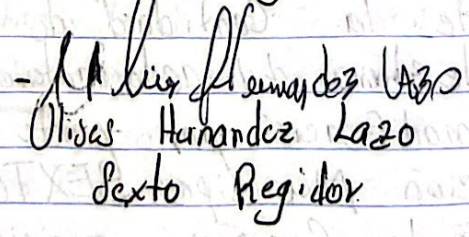 - Ulises Hernandez Lazo
Ulises Hernandez Lazo
Sexto Regidor